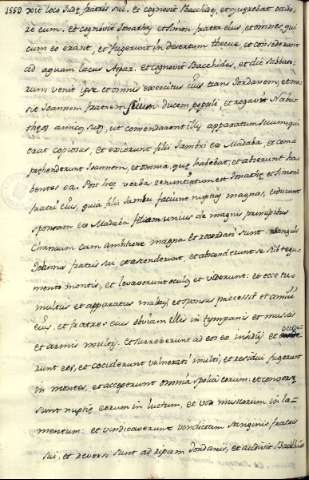 1550 pit loco Judę fratris sui. et cognovit Bacchides, et quęrebat occide
re eum. et cognovit Jonathas et Simon frater eius, et omnes qui
cum eo erant, et fugerunt in desertum thecue, et consederunt
ad aquam lacus Asphar. et cognovit Bacchides, et die Sabbato
rum venit ipse et omnis exercitus eius trans Jordanem, et mi
sit Joannem fratrem suum ducem populi, et rogavit Nabu
theos amicos suos, ut comendarent illis apparatum suum qui
erat copiosus, et exierunt filii Jambri ex Madaba et com
prehenderunt Joannem, et omnia, quę habebat, et abierunt ha
bentes ea. Post hęc verba renunciatum est Jonathę et Simoni
fratri eius, quia filii Jambri faciunt nuptias magnas, et ducunt
sponsam ex Madaba filiam unius de magnis principibus
Chanaan cum ambitione magna. et recordati sunt sanguinis
Joannis fratris sui et ascenderunt, et absconderunt se sub tegu
mento montis, et levaverunt oculos et viderunt: et ecce tu
multus et apparatus multus, et sponsus processit et amici
eius, et fratres eius obviam illis in tympanis et musicis
et armis multis. et surrexerunt ad eos ex insidiis et occide
runt eos, et ceciderunt vulnerati multi, et residui fugerunt
in montes, et acceperunt omnia spolia eorum: et conversę
sunt nuptię eorum in luctum, et vox musicorum in la-
mentum: et vindicaverunt vindictam sanguinis fratris
sui. et reversi sunt ad ripam Jordanis, et audivit Bacchides